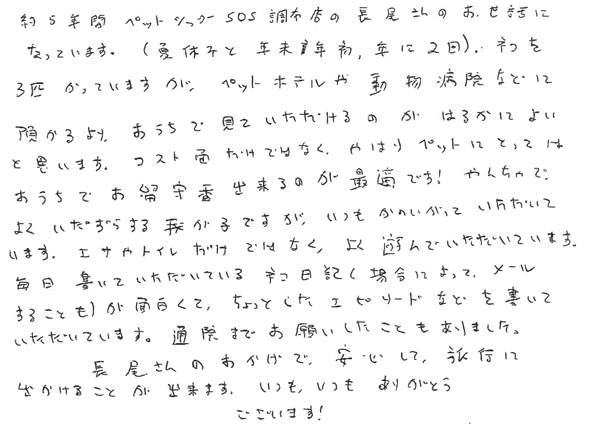 約5年間 ペットシッターSOS 調布店の 長尾さんの お世話に
なっています。(夏休みと 年末年始、年に2回)、ネコを
3匹 かっていますが、ペットホテルや 動物病院などに
預かるより、おうちで見ていただけるのが はるかによい
と思います。コスト面だけではなく、やはりペットにとっては
おうちでお留守番出来るのが最適です! やんちゃで、
よくいたずらする我が子ですが、いつもかわいがっていただいて
います。エサやトイレだけではなく、よく遊んでいただいています。
毎日 書いていただいている ネコ日記(場合によって、メール
することも)が面白くて、ちょっとした エピソードなどを書いて
いただいています。通院までお願いしたこともありました。
長尾さんのおかげで、安心して、旅行に
出かけることが出来ます。いつも、いつも ありがとう
ございます!